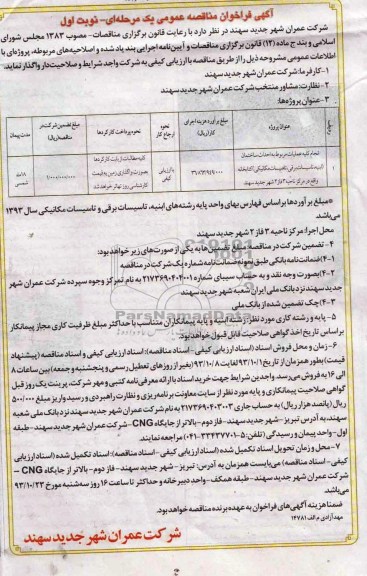 آگهی فراخوان مناقصه عمومی یک مرحله‌ای- نوبت اول
شرکت عمران شهر جدید سهند در نظر دارد با رعایت قانون برگزاری مناقصات- مصوب ۱۳۸۳ مجلس شورای
اسلامی و بند ج ماده (۱۲) قانون برگزاری مناقصات و آیین‌نامه اجرایی بند یاد شده و اصلاحیه‌های مربوطه، پروژه‌ای با
اطلاعات عمومی مشروحه ذیل را از طریق مناقصه با ارزیابی کیفی به شرکت واجد شرایط و صلاحیت‌دار واگذار نماید.
۱- کارفرما: شرکت عمران شهر جدید سهند
۲- نظارت: مشاور منتخب شرکت عمران شهر جدید سهند
۳- عنوان پروژه‌ها:
ردیف عنوان پروژه مبلغ برآورد هزینه اجرای کار (ریال) نحوه ارجاع کار نحوه پرداخت کارکردها مبلغ تضمین شرکت در مناقصه (ریال) مدت پیمان
۱ انجام کلیه عملیات مربوط به احداث ساختمان
ابنیه، تاسیسات برقی و تاسیسات مکانیکی کتابخانه
واقع در مرکز ناحیه ۳ فاز ۲ شهر جدید سهند
با ارزیابی کیفی
کلیه مطالبات از بابت کارکردها
بصورت واگذاری زمین به قیمت
کارشناسی روز تهاتر خواهد شد
۱/۰۰۰/۰۰۰/۰۰۰
۱۸ ماه شمسی
*مبلغ برآوردها براساس فهارس بهای واحد پایه رشته‌های ابنیه، تاسیسات برقی و تاسیسات مکانیکی سال ۱۳۹۳
می‌باشد.
محل اجرا: مرکز ناحیه ۳ فاز ۲ شهر جدید سهند
۴- تضمین شرکت در مناقصه: مبلغ تضمین‌ها به یکی از صورت‌های زیر خواهد بود:
۴-۱) ضمانت‌نامه بانکی طبق نمونه ضمانت‌نامه شماره یک شرکت در مناقصه
۴-۲) بصورت وجه نقد و به حساب سیبای شماره ۲۱۷۳۶۹۰۴۰۴۰۰۱ به نام تمرکز وجوه سپرده شرکت عمران شهر
جدید سهند نزد بانک ملی ایران شعبه شهر جدید سهند
۴-۳) چک تضمین شده از بانک ملی
۵- پایه و رشته کاری مورد نظر: رشته ابنیه و پایه پیمانکاران متناسب با حداکثر مبلغ ظرفیت کاری مجاز پیمانکار
براساس تاریخ اخذ گواهی صلاحیت قابل قبول خواهد بود.
۶- زمان و محل فروش اسناد (اسناد ارزیابی کیفی- اسناد مناقصه): اسناد ارزیابی کیفی و اسناد مناقصه (پیشنهاد
قیمت) بطور همزمان از تاریخ ۹۳/۱۰/۱ لغایت ۹۳/۱۰/۸ (بغیر از روزهای تعطیل رسمی و پنجشنبه و جمعه) بین ساعات ۸
الی ۱۶ به فروش می‌رسد. واجدین شرایط جهت خرید اسناد با ارائه معرفی‌نامه کتبی و مهر شرکت، پرینت یک روز قبل
گواهی صلاحیت پیمانکاری و پایه مورد نظر از سایت معاونت برنامه‌ریزی و نظارت راهبردی و رسید واریز مبلغ ۵۰۰/۰۰۰
ریال (پانصد هزار ریال) به حساب جاری ۲۱۷۳۶۹۰۴۰۳۰۰۳ به نام شرکت عمران شهر جدید سهند نزد بانک ملی شعبه
سهند، به آدرس تبریز- شهر جدید سهند- فاز دوم- بالاتر از جایگاه CNG- شرکت عمران شهر جدید سهند- طبقه
اول- واحد پیمان و رسیدگی (تلفن: ۵-۳۳۴۳۷۷۰۱-۰۴۱) مراجعه نمایند.
۷- محل و زمان تحویل اسناد تکمیل شده (اسناد ارزیابی کیفی- اسناد مناقصه): اسناد تکمیل شده (اسناد ارزیابی
کیفی- اسناد مناقصه) می‌بایست همزمان به آدرس: تبریز- شهر جدید سهند- فاز دوم- بالاتر از جایگاه CNG-
شرکت عمران شهر جدید سهند- طبقه همکف- واحد دبیرخانه و حداکثر تا ساعت ۱۶ روز سه‌شنبه مورخ ۹۳/۱۰/۲۳
می‌باشد.
ضمنا هزینه آگهی‌های فراخوان به عهده برنده مناقصه خواهد بود.
مهد آزادی م الف ۱۴۷۸۱
شرکت عمران شهر جدید سهند
ParsNamadData